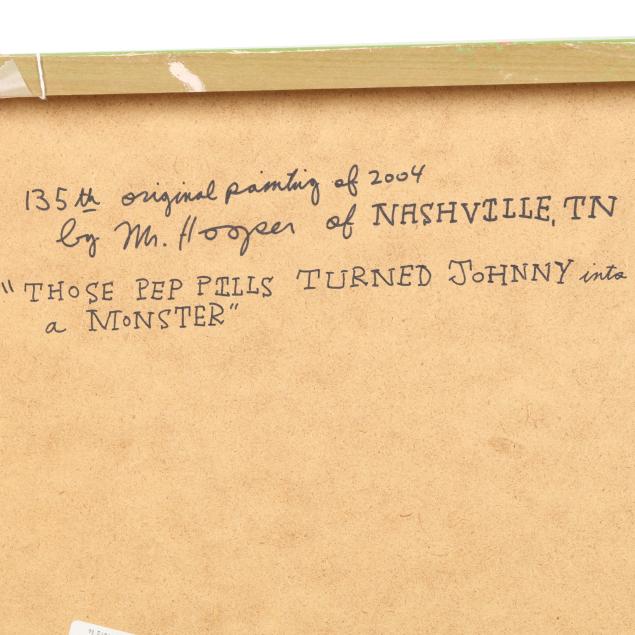 135th original painting of 2004
by Mr. Hooper of NASHVILLE, TN
"THOSE PEP PILLS TURNED JOHNNY into
a MONSTER"